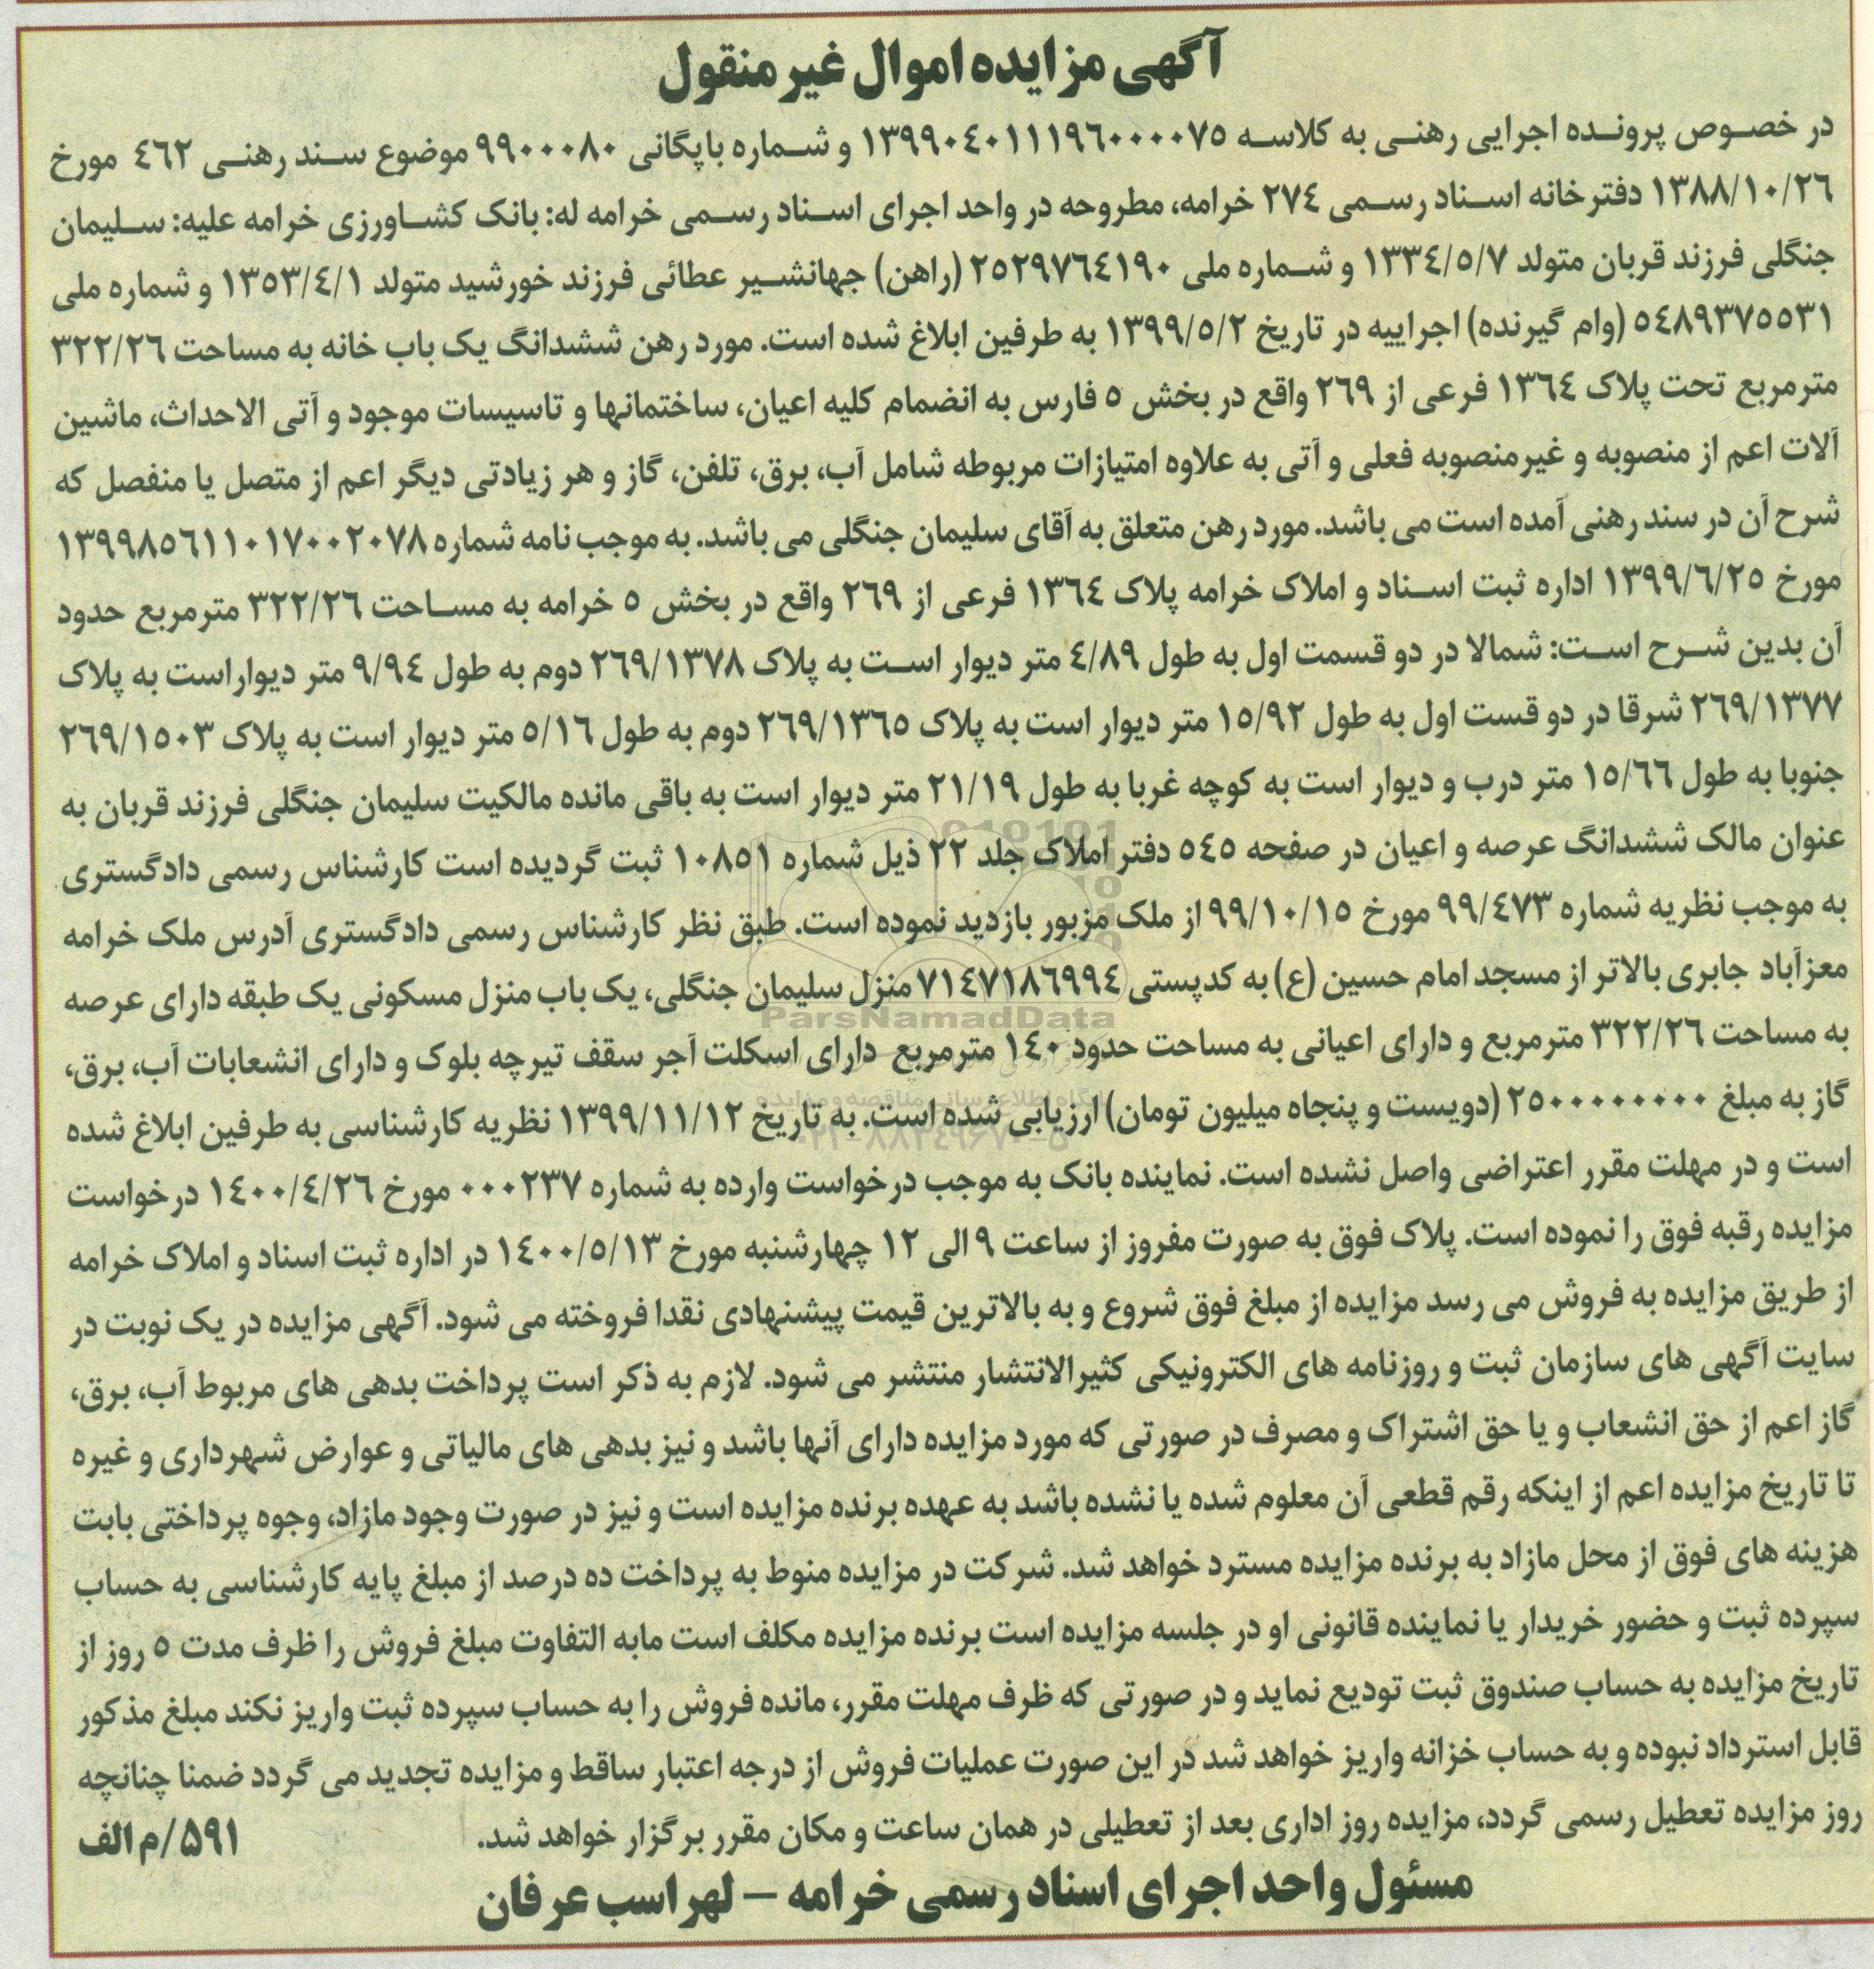 آگهی مزایده اموال غیر منقول
در خصوص پرونده اجرایی رهنی به کلاسه ۱۳۹۹۰٤۰۱۱۱۹٦۰۰۰۰۷٥ و شماره بایگانی ۹۹۰۰۰۸۰ موضوع سند رهنی ٤٦۲ مورخ
۱۳۸۸/۱۰/۲٦ دفترخانه اسناد رسمی ۲۷٤ خرامه، مطروحه در واحد اجرای اسناد رسمی خرامه له: بانک کشاورزی خرامه علیه: سلیمان
جنگلی فرزند قربان متولد ۱۳۳٤/٥/۷ و شماره ملی ۲٥۲۹۷٦٤۱۹۰ (راهن) جهانشیر عطائی فرزند خورشید متولد ۱۳٥۳/٤/۱ و شماره ملی
٥٤۸۹۳۷٥٥۳۱ (وام گیرنده) اجراییه در تاریخ ۱۳۹۹/٥/۲ به طرفین ابلاغ شده است. مورد رهن ششدانگ یک باب خانه به مساحت ۳۲۲/۲٦
مترمربع تحت پلاک ۱۳٦٤ فرعی از ۲٦۹ واقع در بخش ٥ فارس به انضمام کلیه اعیان، ساختمانها و تاسیسات موجود و آتی الاحداث، ماشین
آلات اعم از منصوبه و غیرمنصوبه فعلی و آتی به علاوه امتیازات مربوطه شامل آب، برق، تلفن، گاز و هر زیادتی دیگر اعم از متصل یا منفصل که
شرح آن در سند رهنی آمده است می باشد. مورد رهن متعلق به آقای سلیمان جنگلی می باشد. به موجب نامه شماره ۱۳۹۹۸٥٦۱۱۰۱۷۰۰۲۰۷۸
مورخ ۱۳۹۹/٦/۲٥ اداره ثبت اسناد و املاک خرامه پلاک ۱۳٦٤ فرعی از ۲٦۹ واقع در بخش ٥ خرامه به مساحت ۳۲۲/۲٦ مترمربع حدود
آن بدین شرح است: شمالا در دو قسمت اول به طول ٤/۸۹ متر دیوار است به پلاک ۲٦۹/۱۳۷۸ دوم به طول ۹/۹٤ متر دیواراست به پلاک
۲٦۹/۱۳۷۷ شرقا در دو قست اول به طول ۱٥/۹۲ متر دیوار است به پلاک ۲٦۹/۱۳٦٥ دوم به طول ٥/۱٦ متر دیوار است به پلاک ۲٦۹/۱٥۰۳
جنوبا به طول ۱٥/٦٦ متر درب و دیوار است به کوچه غربا به طول ۲۱/۱۹ متر دیوار است به باقی مانده مالکیت سلیمان جنگلی فرزند قربان به
عنوان مالک ششدانگ عرصه و اعیان در صفحه ٥٤٥ دفتر املاک جلد ۲۲ ذیل شماره ۱۰۸٥۱ ثبت گردیده است کارشناس رسمی دادگستری
به موجب نظریه شماره ۹۹/٤۷۳ مورخ ۹۹/۱۰/۱٥ از ملک مزبور بازدید نموده است. طبق نظر کارشناس رسمی دادگستری آدرس ملک خرامه
معزآباد جابری بالاتر از مسجد امام حسین (ع) به کدپستی ۷۱٤۷۱۸٦۹۹٤ منزل سلیمان جنگلی، یک باب منزل مسکونی یک طبقه دارای عرصه
به مساحت ۳۲۲/۲٦ مترمربع و دارای اعیانی به مساحت حدود ۱٤۰ مترمربع دارای اسکلت آجر سقف تیرچه بلوک و دارای انشعابات آب، برق،
گاز به مبلغ ۲٥۰۰۰۰۰۰۰۰ (دویست و پنجاه میلیون تومان) ارزیابی شده است. به تاریخ ۱۳۹۹/۱۱/۱۲ نظریه کارشناسی به طرفین ابلاغ شده
است و در مهلت مقرر اعتراضی واصل نشده است. نماینده بانک به موجب درخواست وارده به شماره ۰۰۰۲۳۷ مورخ ۱٤۰۰/٤/۲٦ درخواست
مزایده رقبه فوق را نموده است. پلاک فوق به صورت مفروز از ساعت ۹ الی ۱۲ چهارشنبه مورخ ۱٤۰۰/٥/۱۳ در اداره ثبت اسناد و املاک خرامه
از طریق مزایده به فروش می رسد مزایده از مبلغ فوق شروع و به بالاترین قیمت پیشنهادی نقدا فروخته می شود. آگهی مزایده در یک نوبت در
سایت آگهی های سازمان ثبت و روزنامه های الکترونیکی کثیرالانتشار منتشر می شود. لازم به ذکر است پرداخت بدهی های مربوط آب، برق،
گاز اعم از حق انشعاب و یا حق اشتراک و مصرف در صورتی که مورد مزایده دارای آنها باشد و نیز بدهی های مالیاتی و عوارض شهرداری و غیره
تا تاریخ مزایده اعم از اینکه رقم قطعی آن معلوم شده یا نشده باشد به عهده برنده مزایده است و نیز در صورت وجود مازاد، وجوه پرداختی بابت
هزینه های فوق از محل مازاد به برنده مزایده مسترد خواهد شد. شرکت در مزایده منوط به پرداخت ده درصد از مبلغ پایه کارشناسی به حساب
سپرده ثبت و حضور خریدار یا نماینده قانونی او در جلسه مزایده است برنده مزایده مکلف است مابه التفاوت مبلغ فروش را ظرف مدت ٥ روز از
تاریخ مزایده به حساب صندوق ثبت تودیع نماید و در صورتی که ظرف مهلت مقرر، مانده فروش را به حساب سپرده ثبت واریز نکند مبلغ مذکور
قابل استرداد نبوده و به حساب خزانه واریز خواهد شد در این صورت عملیات فروش از درجه اعتبار ساقط و مزایده تجدید می گردد ضمنا چنانچه
روز مزایده تعطیل رسمی گردد، مزایده روز اداری بعد از تعطیلی در همان ساعت و مکان مقرر برگزار خواهد شد. ۵۹۱/م الف
مسئول واحد اجرای اسناد رسمی خرامه – لهراسب عرفان
ParsNamadData